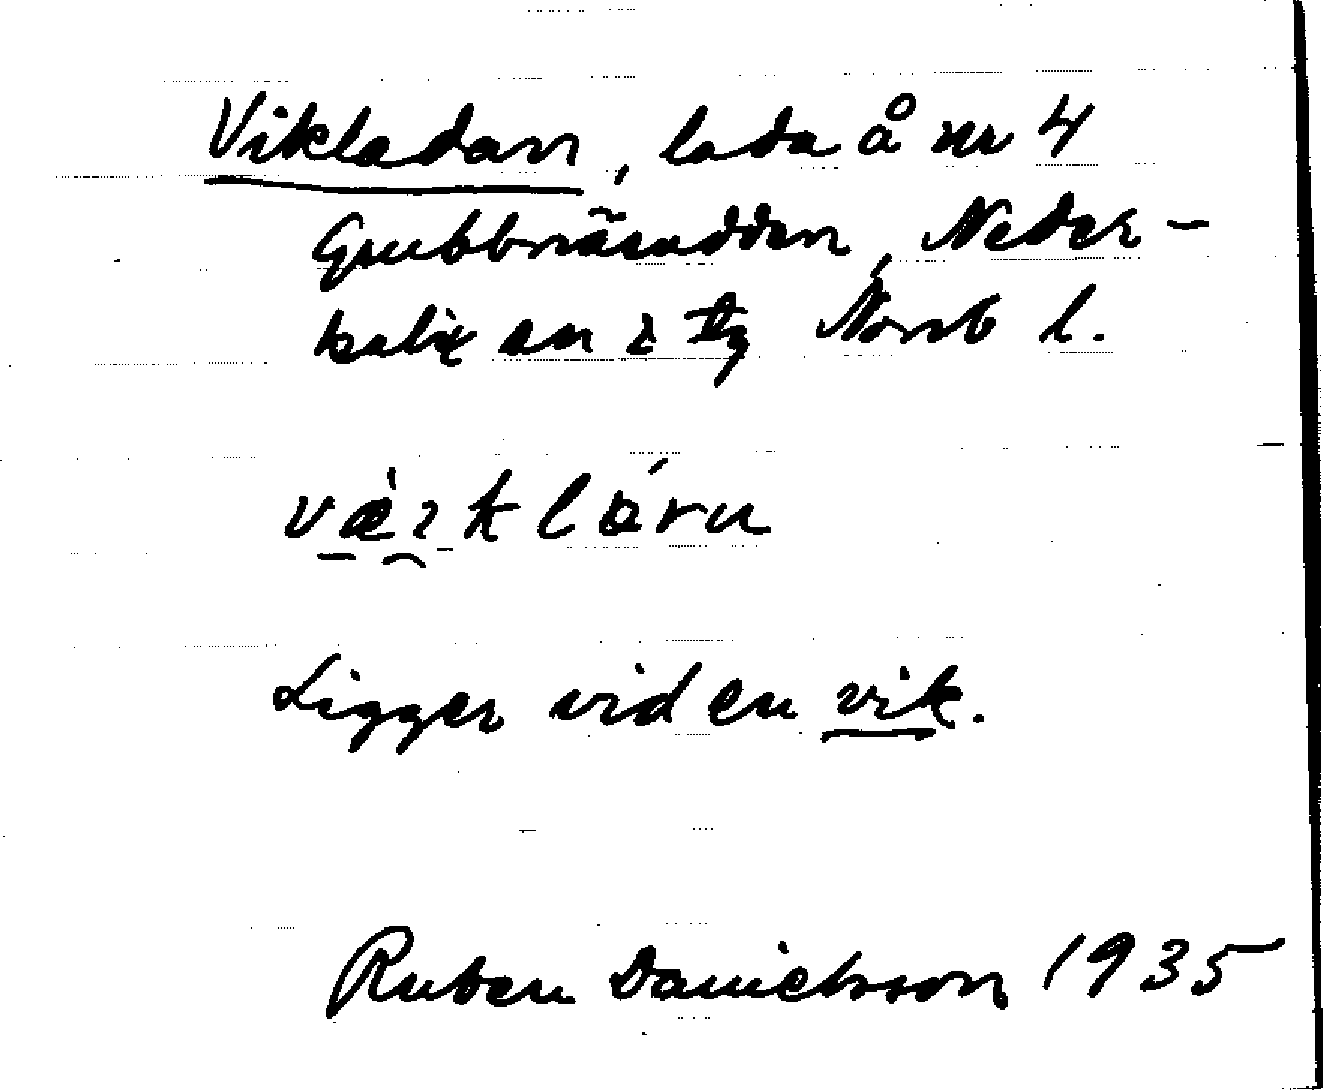 Vikladan, lada å nr 4
Grubbnäsudden, Neder-
kalix sn Norrb l.
Ligger vid en vik.
Ruben Danielsson 1935